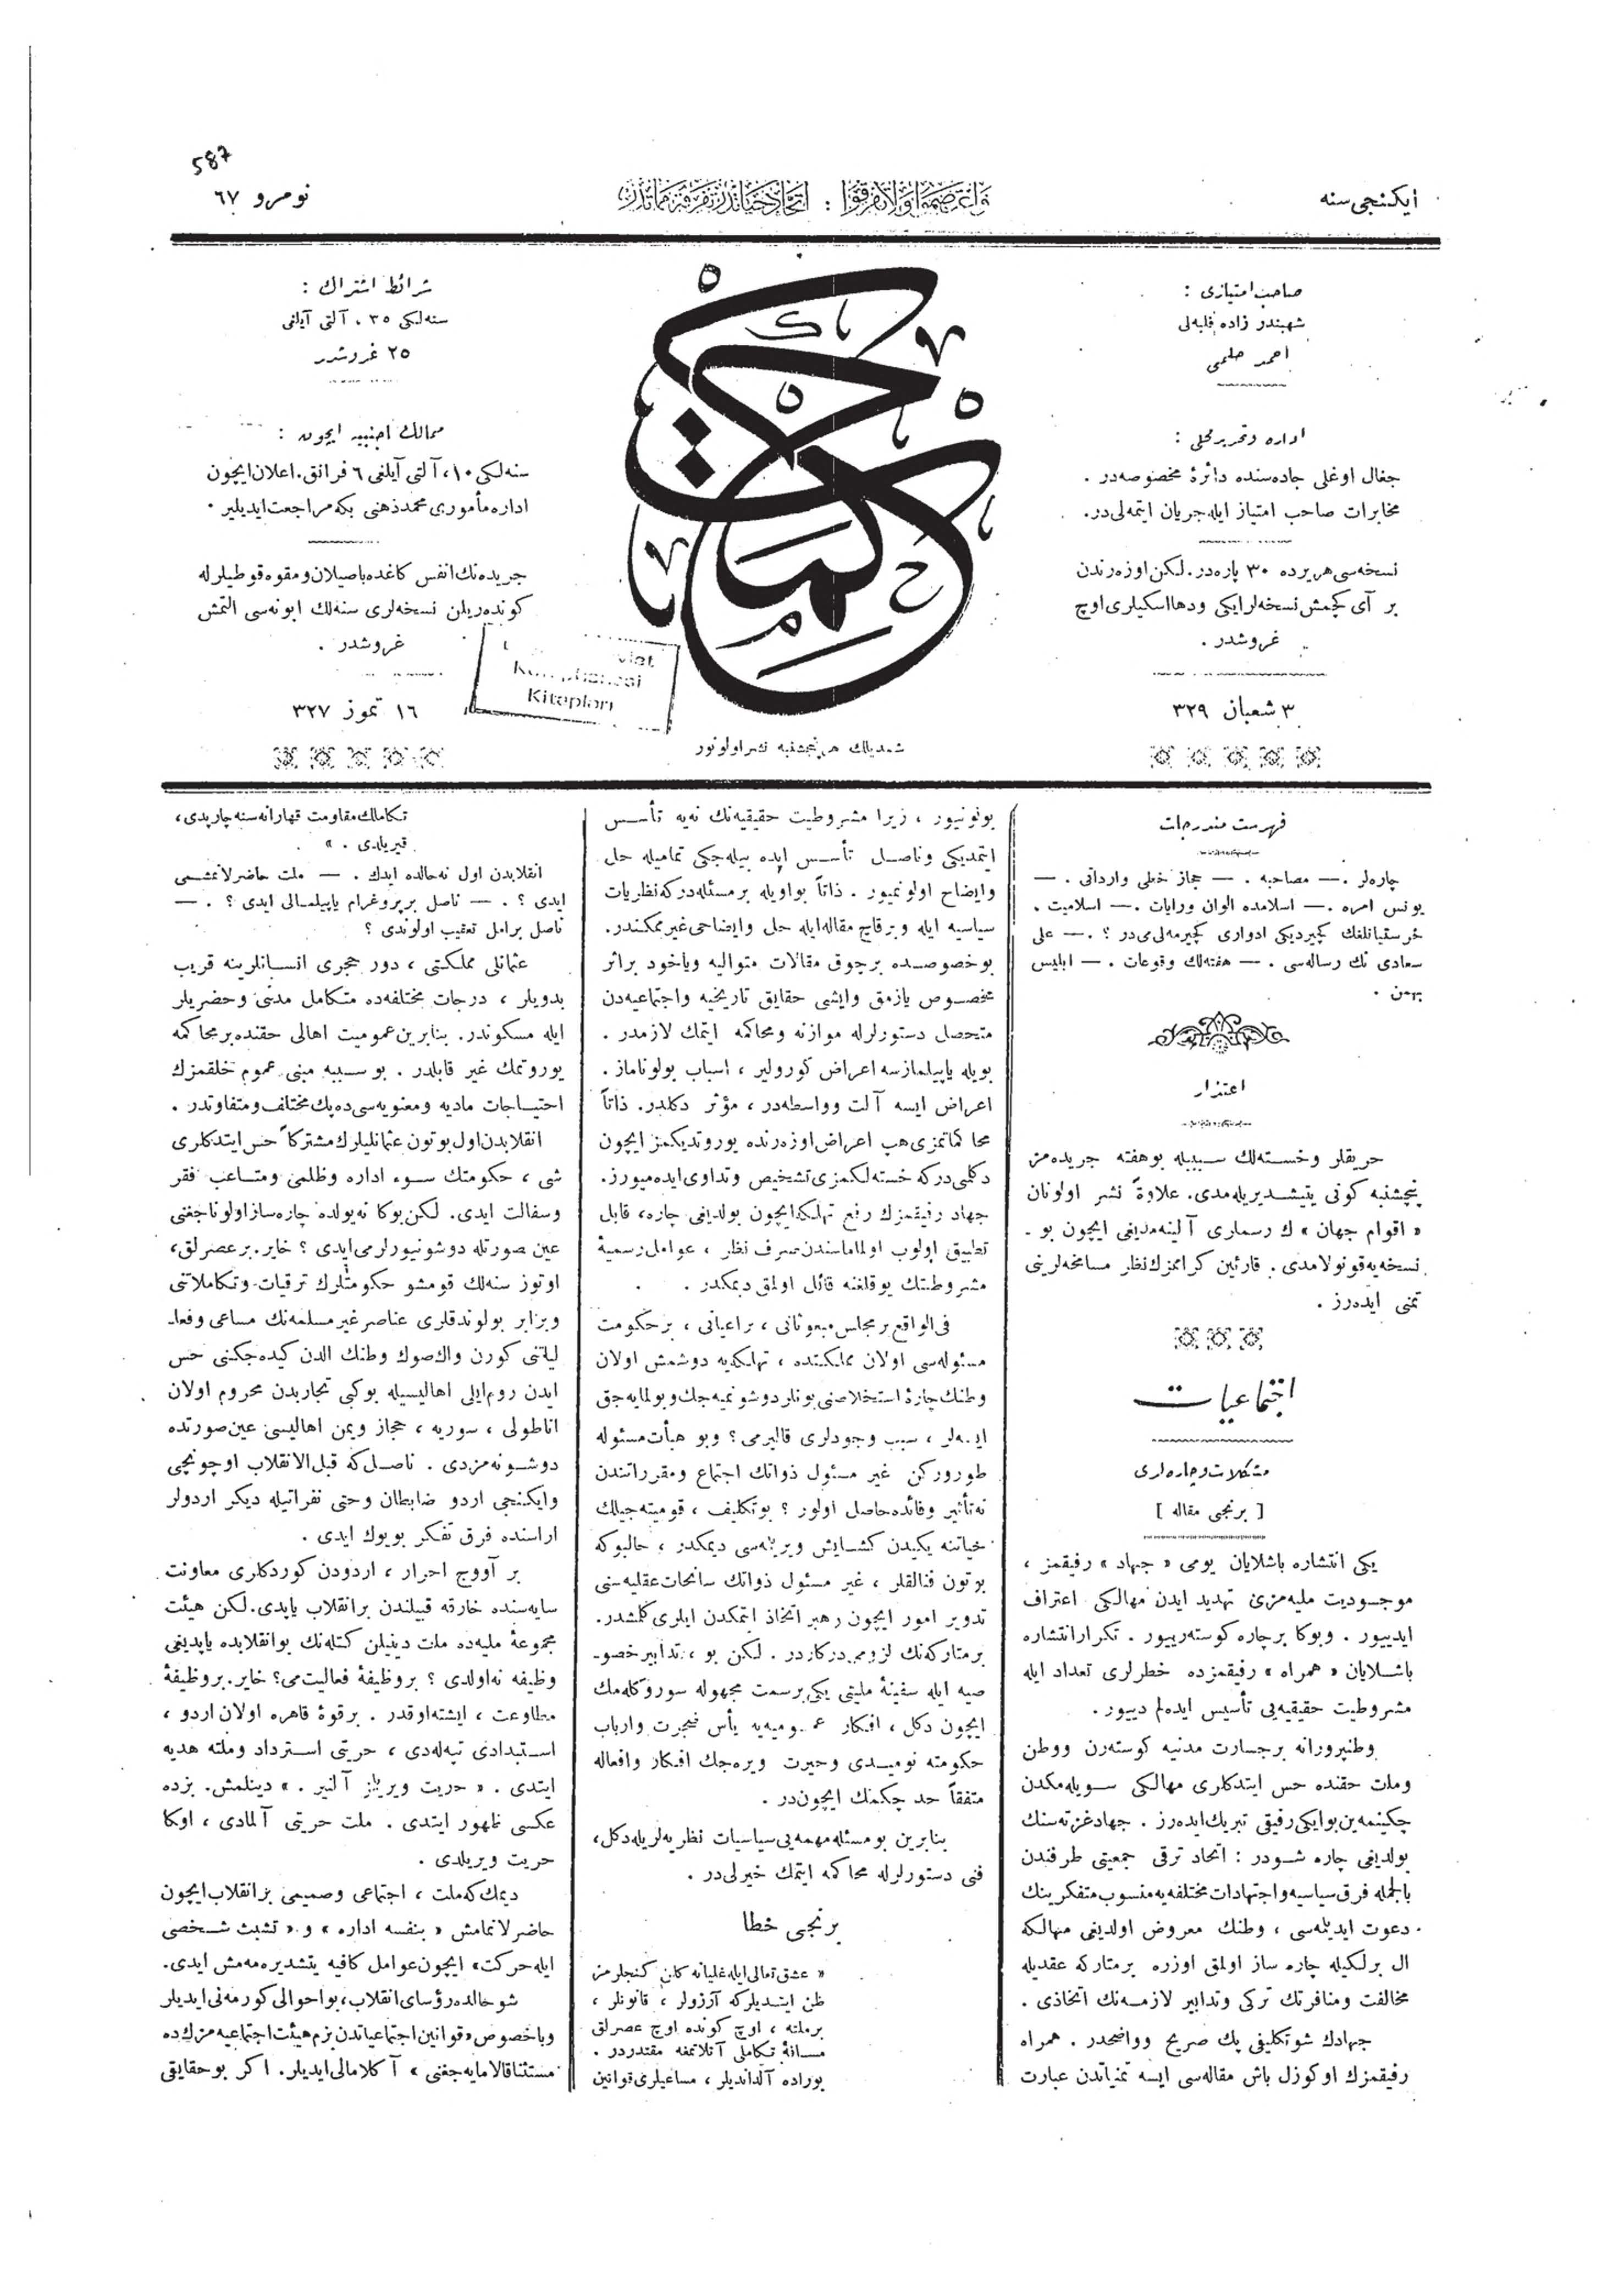 587
ایکنجی سنه
واعتصموا ولا تفرقوا : اتحاد حیاتدر تفرقه مماتدر
نومرو ٦٧
صاحب امتیازی :
شهبندر زاده فلبه‌لی
احمد حلمی
اداره و تحریر محلی :
جغال اوغلی جاده‌سنده دائرهٔ مخصوصه‌در .
مخابرات صاحب امتیاز ایله جریان ایتمه‌لی‌در.
نسخه‌سی هر یرده ٣٠ پاره‌در. لکن اوزه‌رندن
بر آی کچمش نسخه‌لر ایکی ودها اسکیلری اوچ
غروشدر .
٣ شعبان ٣٢٩
حکمت
شمدیلك هر پنجشنبه نشر اولونور
شرائط اشتراك :
سنه‌لکی ٣٥ ، آلتی آیلغی
٢٥ غروشدر
ممالك اجنبیه ایچون :
سنه‌لکی ١٠، آلتی آیلغی ٦ فرانق. اعلان ایچون
اداره مأموری محمد ذهنی بکه مراجعت ایدیلیر .
جریده‌نك انفس کاغده باصیلان و مقوه قوطیلرله
کونده‌ریلن نسخه‌لری سنه‌لك ابونه‌سی التمش
غروشدر .
١٦ تموز ٣٢٧
Kitapları
فهرست مندرجات
چاره‌لر .— مصاحبه . — حجاز خطی وارداتی . —
یونس امره .— اسلامده الوان ورایات .— اسلامیت .
خرستیانلغك کچیردیکی ادواری کچیرمه‌لی‌می‌در ؟ .— علی
سعادی نك رساله‌سی . — هفته‌لك وقوعات . — ابلیس
بهمن .
اعتذار
حریقلر وخسته‌لك سببیله بوهفته جریده‌مز
پنجشنبه کونی یتیشدیریله‌مدی. علاوةً نشر اولونان
« اقوام جهان » ك رسملری آلینه‌مدیغی ایچون بو
نسخه‌یه قونولامدی . قارئین کرامزك نظر مسامحه‌لرینی
تمنی ایده‌رز .
اجتماعیات
مشکلات و چاره‌لری
[ برنجی مقاله ]
یکی انتشاره باشلایان یومی « جهاد » رفیقمز ،
موجودیت ملیه‌مزی تهدید ایدن مهالکی اعتراف
ایدییور . وبوکا برچاره کوسته‌رییور . تکرار انتشاره
باشلایان « همراه » رفیقمزده خطرلری تعداد ایله
مشروطیت حقیقیه‌یی تأسیس ایده‌لم دییور .
وطنپرورانه برجسارت مدنیه کوسته‌رن ووطن
وملت حقنده حس ایتدکلری مهالکی سویله‌مکدن
چکینمه‌ین بوایکی رفیقی تبریك ایده‌رز . جهاد غزته‌سنك
بولدیغی چاره شودر : اتحاد ترقی جمعیتی طرفندن
بالجمله فرق سیاسیه و اجتهادات مختلفه‌یه منسوب متفکرینك
دعوت ایدیله‌سی ، وطنك معروض اولدیغی مهالکه
ال برلکیله چاره ساز اولمق اوزره برمتارکه عقدیله
مخالفت ومنافرتك ترکی وتدابیر لازمه‌نك اتخاذی .
جهادك شو تکلیفی پك صریح وواضحدر . همراه
رفیقمزك اوکوزل باش مقاله‌سی ایسه تمنیاتدن عبارت
بولونیور ، زیرا مشروطیت حقیقیه‌نك نه‌یه تأسس
ایتمدیکی وناصل تأسس ایده بیله‌جکی تمامیله حل
وایضاح اولونمیور . ذاتاً بواویله بر مسئله‌درکه نظریات
سیاسیه ایله وبرقاچ مقاله ایله حل وایضاحی غیر ممکندر.
بوخصوصده برچوق مقالات متوالیه ویاخود براثر
مخصوص یازمق وایشی حقایق تاریخیه واجتماعیه‌دن
متحصل دستورلرله موازنه ومحاکمه ایتمك لازمدر .
بویله یاپیلمازسه اعراض کورولیر ، اسباب بولوناماز .
اعراض ایسه آلت وواسطه‌در ، مؤثر دکلدر. ذاتاً
محاکماتمزی هپ اعراض اوزه‌رنده یوروتدیکمز ایچون
دکلمی‌درکه خسته‌لکمزی تشخیص وتداوی ایده‌میورز.
جهاد رفیقمزك رفع تهلکه ایچون بولدیغی چاره، قابل
تطبیق اولوب اولماماسندن صرف نظر ، عوامل رسمیهٔ
مشروطیتك یوقلغنه قائل اولمق دیمکدر .
فی‌الواقع بر مجلس مبعوثانی ، براعیانی ، برحکومت
مسئوله‌سی اولان مملکتده ، تهلکه‌یه دوشمش اولان
وطنك چارهٔ استخلاصنی بونلر دوشونمیه‌جك و بولمایه‌جق
ایسه‌لر ، سبب وجودلری قالیرمی؟ وبو هیأت مسئوله
طورورکن غیر مسئول ذواتك اجتماع ومقرراتندن
نه تأثیر وفائده حاصل اولور ؟ بوتکلیف ، قومیته‌جیلك
حیاتنه یکیدن کشایش ویرلمه‌سی دیمکدر ، حالبوکه
بوتون فنالقلر ، غیر مسئول ذواتك سانحات عقلیه‌سنی
تدویر امور ایچون رهبر اتخاذ ایتمکدن ایلری کلمشدر.
برمتارکه‌نك لزومی درکاردر . لکن بو ، تدابیر خصو-
صیه ایله سفینهٔ ملیتی یکی برسمت مجهوله سوروکله‌مك
ایچون دکل ، افکار عمومیه‌یه یأس ضجرت وارباب
حکومته نومیدی وحیرت ویره‌جك افکار وافعاله
متفقاً حد چکمك ایچون‌در .
بنابرین بو مسئلهٔ مهمه‌یی سیاسیات نظریه‌لریله دکل،
فنی دستورلرله محاکمه ایتمك خیرلی‌در .
برنجی خطا
« عشق تعالی ایله غلیانه کلن کنجلرمز
ظن ایتدیلرکه آرزولر ، قانونلر ،
برملته ، اوچ کونده اوچ عصرلق
مسافهٔ تکاملی آتلاتمغه مقتدردر .
بوراده آلداندیلر ، مساعیلری قوانین
تکاملك مقاومت قهارانه‌سنه چارپدی ،
قیریلدی . »
انقلابدن اول نه‌حالده ایدك . — ملت حاضرلانمشمی
ایدی ؟ . — ناصل بر پروغرام یاپیلمالی ایدی ؟ . —
ناصل برامل تعقیب اولوندی ؟
عثمانلی مملکتی ، دور حجری انسانلرینه قریب
بدویلر ، درجات مختلفه‌ده متکامل مدنی وحضریلر
ایله مسکوندر. بنابرین عمومیت اهالی حقنده برمحاکمه
یوروتمك غیر قابلدر . بو سببه مبنی عموم خلقمزك
احتیاجات مادیه ومعنویه‌سی ده پك مختلف ومتفاوتدر .
انقلابدن اول بوتون عثمانلیلرك مشترکاً حس ایتدکلری
شی ، حکومتك سوء اداره وظلمی ومتاعب فقر
وسفالت ایدی. لکن بوکا نه‌یولده چاره‌ساز اولوناجغنی
عین صورتله دوشونیورلرمی ایدی ؟ خایر. برعصرلق،
اوتوز سنه‌لك قومشو حکومتلرك ترقیات وتکاملاتنی
وبرابر بولوندقلری عناصر غیر مسلمه‌نك مساعی وفعا-
لیاتنی کورن واك‌صوك وطنك الدن کیده‌جکنی حس
ایدن روم‌ایلی اهالیسیله بوکبی تجاربدن محروم اولان
اناطولی ، سوریه ، حجاز ویمن اهالیسی عین صورتده
دوشونه‌مزدی . ناصل‌که قبل‌الانقلاب اوچونجی
وایکنجی اردو ضابطان وحتی نفراتیله دیکر اردولر
اراسنده فرق تفکر بویوك ایدی .
بر آووج احرار ، اردودن کوردکلری معاونت
سایه‌سنده خارقه قبیلندن برانقلاب یاپدی. لکن هیئت
مجموعهٔ ملیه‌ده ملت دینیلن کتله‌نك بوانقلابده یاپدیغی
وظیفه نه‌اولدی ؟ بروظیفهٔ فعالیت‌می؟ خایر. بروظیفهٔ
مطاوعت ، ایشته اوقدر . برقوهٔ قاهره اولان اردو ،
استبدادی تپه‌له‌دی ، حریتی استرداد وملته هدیه
ایتدی . « حریت ویریلز آلنیر . » دینلمش. بزده
عکسی ظهور ایتدی . ملت حریتی آلمادی ، اوکا
حریت ویریلدی .
دیمك‌که ملت ، اجتماعی وصمیمی برانقلاب ایچون
حاضرلانمامش « بنفسه اداره » و « تشبث شخصی
ایله حرکت » ایچون عوامل کافیه یتشدیره‌مه‌مش ایدی.
شو حالده رؤسای انقلاب، بواحوالی کورمه‌لی ایدیلر
وباخصوص « قوانین اجتماعیاتدن بزم هیئت اجتماعیه‌مزك ده
مستثنا قالامایه‌جغنی » آکلامالی ایدیلر. اکر بوحقایقی